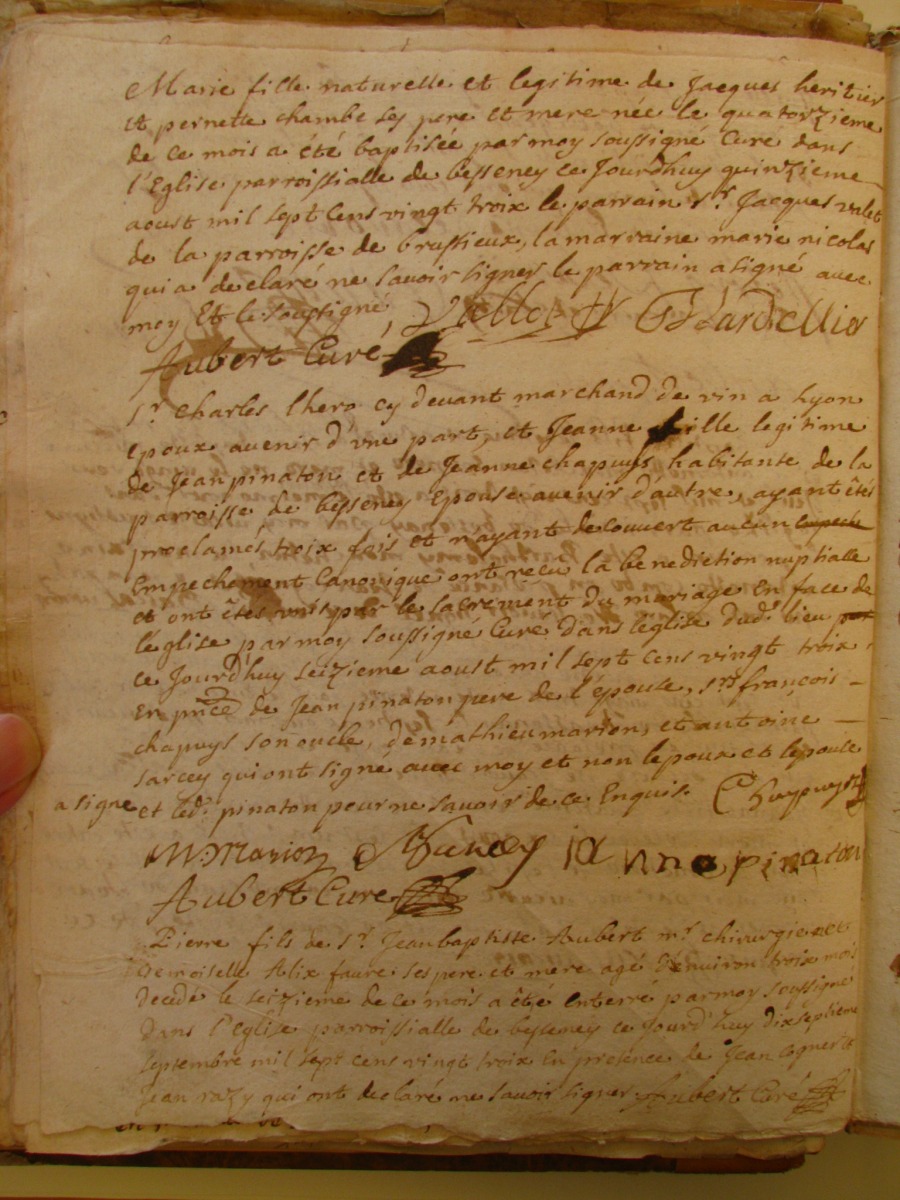 Marie fille naturelle et legitime de Jacques heritier
et pernette chambe ses pere et mere née le quatorzieme
de ce mois a été baptisée par moy soussigné Curé dans
l'Eglise parroissialle de besseney ce Jourdhuy quinzieme
aoust mil sept cens vingt troix le parrain sr. Jacques valet
de la parroisse de brussieux, la marraine marie nicolas
qui a declaré ne savoir signer le parrain a signé avec
moy Et le soussigné
Aubert Curé
sr. Charles lhero cy devant marchand de vin a Lyon
Epoux avenir d'vne part, et Jeanne fille legitime
de Jean pinaton et de Jeanne chapuys habitante de la
parroisse de besseney Epouse avenir d'autre, ayant êtés
proclamés troix fois et n'ayant decouvert aucun empeche
Empechement Canonique ont reçu la benediction nuptialle
et ont êtés vnis par le sacrement du mariage En face de
léglise par moy soussigné Curé dans léglise dud. lieu
ce Jourd'huy seizieme aoust mil sept cens vingt troix
En pnce de Jean pinaton pere de l'épouse, sr. françois
chapuys son oncle, de mathieu marion, et antoine
sarcey qui ont signé avec moy et non lepoux et lepouse
a signe et led. pinaton pour ne savoir de ce Enquis. Chapuys
M. Marion A Sarcey pinaton
Aubert Curé
Pierre fils de sr. Jean baptiste Aubert mr. chirurgien et
Demoiselle Alix faure ses pere et mere agé d'environ troix mois
decedé le seizieme de ce mois a êté enterré par moy soussigné
dans l'Eglise parroissialle de besseney ce Jourd'huy dixseptieme
septembre mil sept cens vingt troix En presence de Jean cognet et
Jean razy qui ont declaré ne savoir signer Aubert Curé